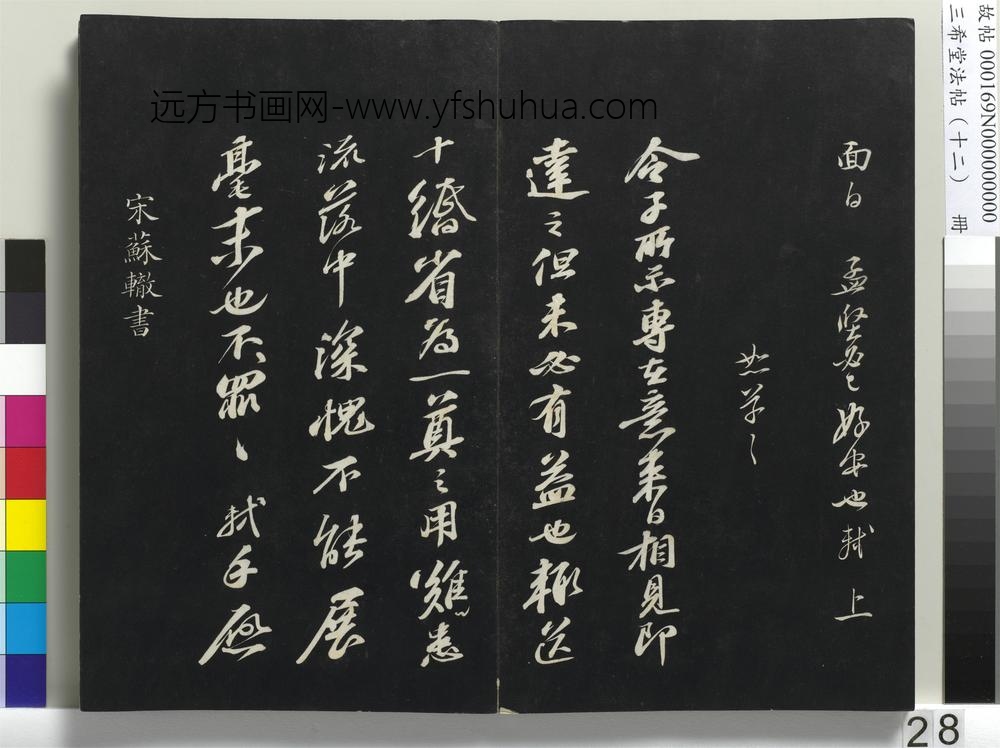 远方书画网-www.yfshuhua.com
故帖 000169N000000000
三希堂法帖（十二） 冊
面白 孟堅必〻好安也軾上
忩草〻
令子所示專在意来日相見即
達之但未必有益也輙送
十縑省為一奠之用難患
流落中深愧不能展
毫末也不罪〻軾手啟
宋蘇轍書
28